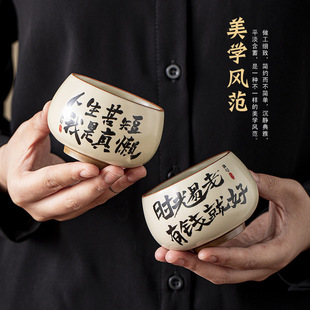 美学风范
做工细致，简约而不简单，沉静典雅，
平淡含蓄，是一种不一样的美学风范。
人生苦短
我是真懒
时光易老
有钱就好